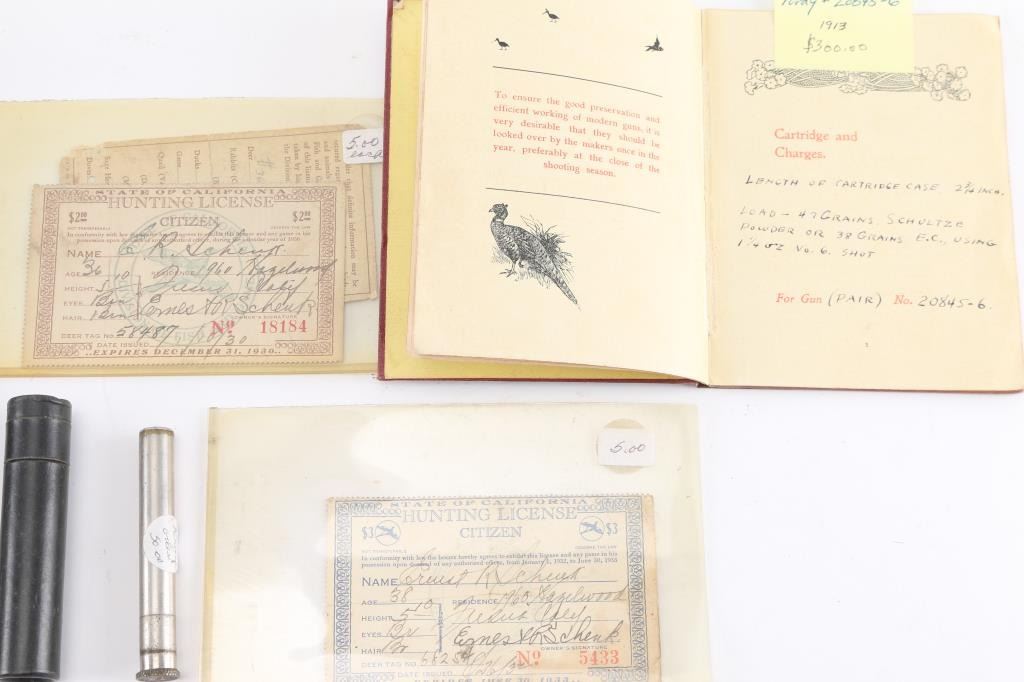 5.00
each
STATE OF CALIFORNIA
HUNTING LICENSE
$2.00 CITIZEN $2.00
NOT TRANSFERABLE OBSERVE THE LAW
In conformity with law the holder hereby agrees to exhibit this license and any game in his
possession upon demand of authorized officer, during the calendar year of 1930
NAME
AGE 36 RESIDENCE 1960 Hazelwood
HEIGHT 5 10 Fresno Calif
EYES Brn Ernest R Schenk
HAIR Brn OWNER'S SIGNATURE
DEER TAG NO. 58487 No 18184
DATE ISSUED
..EXPIRES DECEMBER 31, 1930..
To ensure the good preservation and
efficient working of modern guns, it is
very desirable that they should be
looked over by the makers once in the
year, preferably at the close of the
shooting season.
20845-6
1913
$300.00
Cartridge and
Charges.
LENGTH OF CARTRIDGE CASE 2¾ INCH.
LOAD - 47 GRAINS, SCHULTZE
POWDER OR 38 GRAINS E.C., USING
1¼ OZ NO. 6. SHOT
For Gun (PAIR) No. 20845-6.
50.00
5.00
STATE OF CALIFORNIA
HUNTING LICENSE
$3 CITIZEN $3
NOT TRANSFERABLE OBSERVE THE LAW
In conformity with law the holder hereby agrees to exhibit this license and any game in his
possession upon demand of any authorized officer, from January 1, 1932, to June 30, 1933
NAME Ernest R. Schenk
AGE 38 RESIDENCE 1960 Hazelwood
HEIGHT 5 10 Fresno Calif
EYES Br Ernest R Schenk
HAIR Br OWNER'S SIGNATURE
DEER TAG NO. No 5433
DATE ISSUED
EXPIRES JUNE 30, 1933